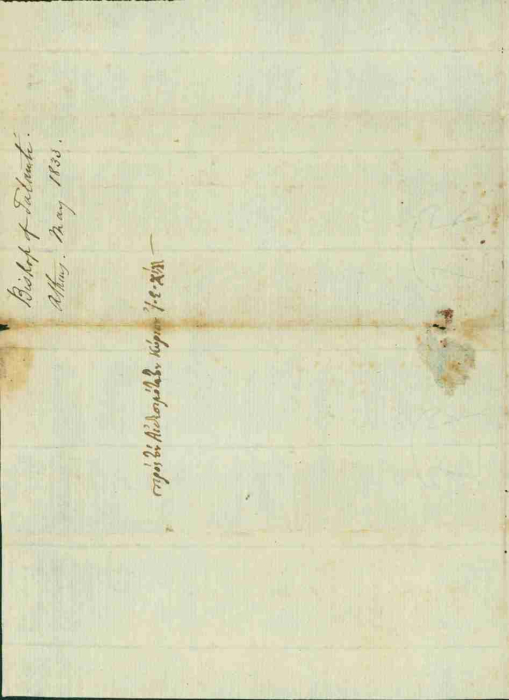 Bishop of Talanti.
May 1833.
πρὸς τὸν Αἰδεσιμώτατον Κύριον